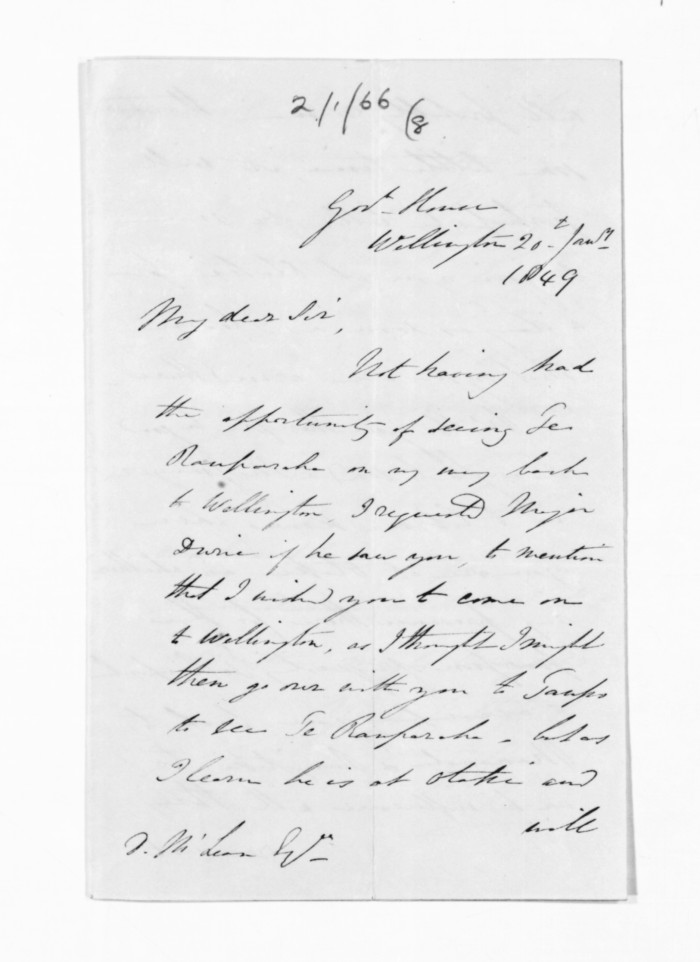 2/1/66 (8
Govt. House
Wellington 20t Jany
1849
My dear Sir,
Not having had
the opportunity of seeing Te
Rauparaha on my way back
to Wellington, I requested Major
Durie if he saw you, to mention
that I wished you to come on
to Wellington, as I thought I might
then go over with you to Taupo
to see Te Rauparaha - but as
I learn he is at Otaki and
will
D. McLean Esqre